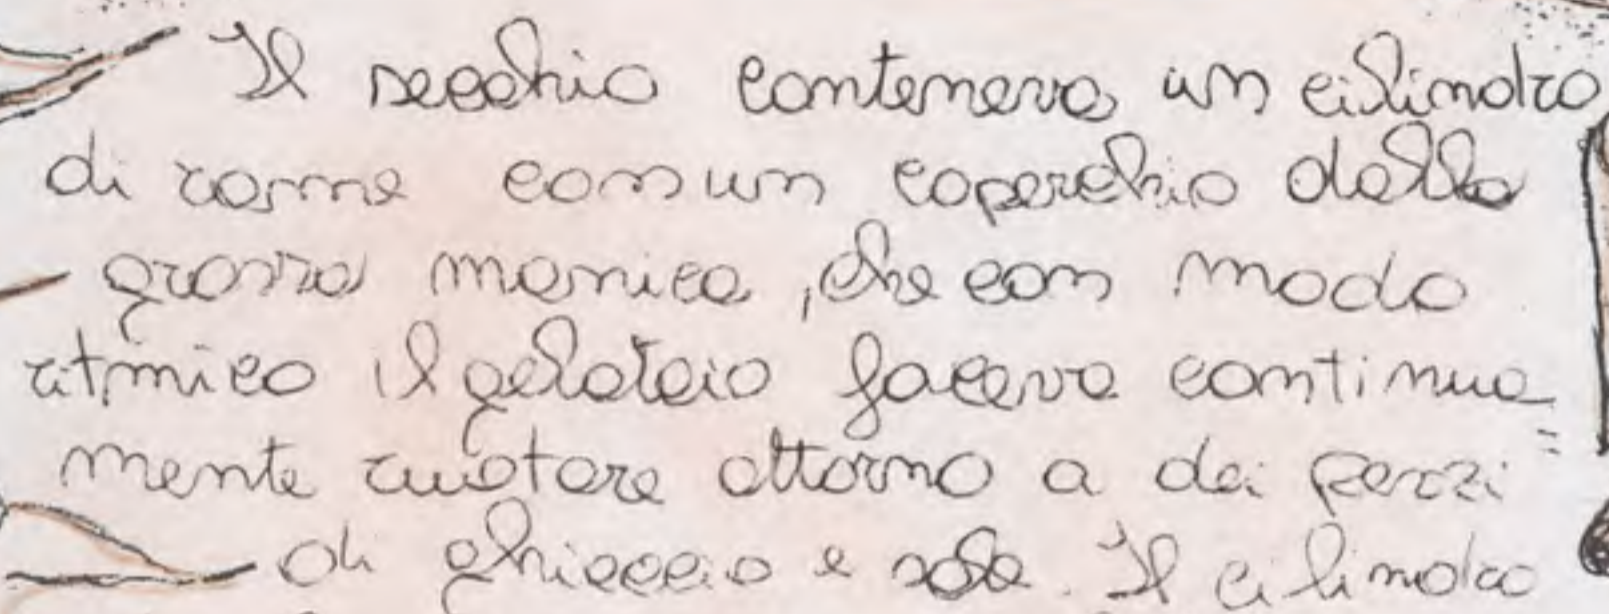 Il secchio conteneva un cilindro
di rame con un coperchio dalla
grossa manica, che con modo
ritmico il gelataio faceva continua
mente ruotare attorno a dei pezzi
di ghiaccio e sale. Il cilindro